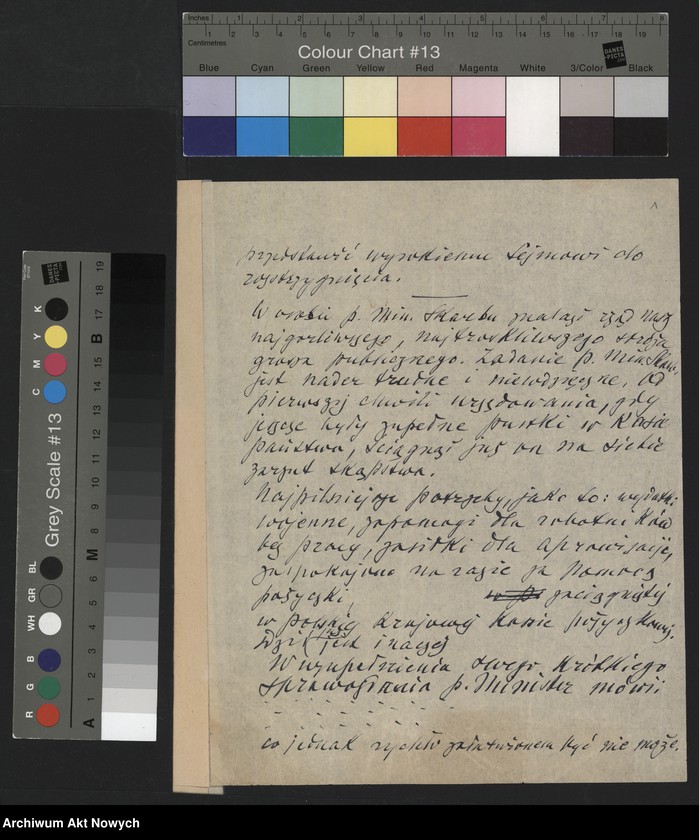 Inches 1 2 3 4 5 6 7 8
Centimetres 1 2 3 4 5 6 7 8 9 10 11 12 13 14 15 16 17 18 19
Colour Chart #13
DANES PICTA .COM
Blue Cyan Green Yellow Red Magenta White 3/Color Black
przedstawić wysokiemu Sejmowi do
rozstrzygnięcia.
W osobie p. Min. Skarbu znalazł rząd nasz
najgorliwszego, najtroskliwszego stróża
grosza publicznego. Zadanie p. Min. Skarb.
jest nader trudne i niewdzięczne. Od
pierwszej chwili urzędowania, gdy
jeszcze były zupełne pustki w Kasie
państwa, ściągnął już on na siebie
zarzut skąpstwa.
Najpilniejsze potrzeby, jako to: wydatki
wojenne, zapomogi dla robotników
bez pracy, zasiłki dla aprowizacji,
zaspokojono na razie za pomocą
pożyczki, zaciągniętej
w Krajowej Kasie pożyczkowej.
Dziś jest inaczej
W uzupełnieniu swego krótkiego
sprawozdania p. Minister mówi:
co jednak rychło załatwionem być nie może.
Grey Scale #13
C M Y K
R G B WH GR BL
A 1 2 3 4 5 6 M 8 9 10 11 12 13 14 15 B 17 18 19
Archiwum Akt Nowych